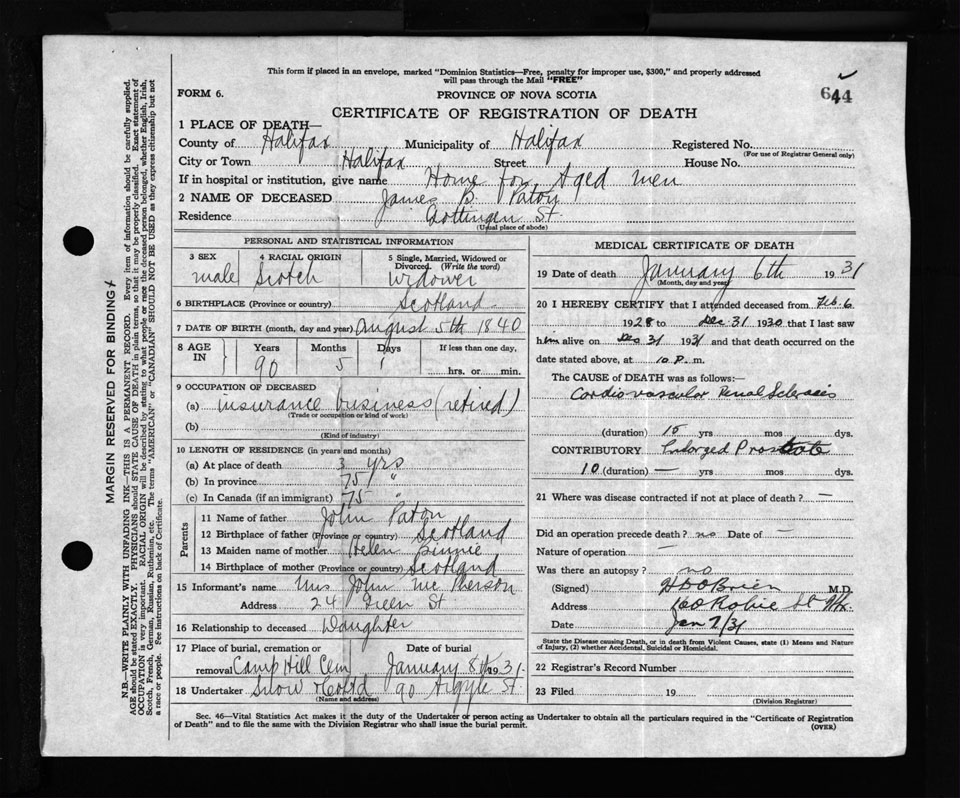 This form if placed in an envelope, marked "Dominion Statistics—Free, penalty for improper use, $300," and properly addressed
will pass through the Mail "FREE"
FORM 6.
PROVINCE OF NOVA SCOTIA
644
CERTIFICATE OF REGISTRATION OF DEATH
1 PLACE OF DEATH—
County of Halifax Municipality of Halifax Registered No.
(For use of Registrar General only)
City or Town Halifax Street House No.
If in hospital or institution, give name Home for Aged men
2 NAME OF DECEASED James B. Paton
Residence Gottingen St
(Usual place of abode)
PERSONAL AND STATISTICAL INFORMATION
3 SEX 4 RACIAL ORIGIN 5 Single, Married, Widowed or
Divorced. (Write the word)
male Scotch Widower
6 BIRTHPLACE (Province or country) Scotland
7 DATE OF BIRTH (month, day and year) August 5th 1840
8 AGE IN Years Months Days If less than one day,
90 5 1 hrs. or min.
9 OCCUPATION OF DECEASED
(a) insurance business (retired)
(Trade or occupation or kind of work)
(b)
(Kind of industry)
10 LENGTH OF RESIDENCE (in years and months)
(a) At place of death 3 yrs
(b) In province 75 "
(c) In Canada (if an immigrant) 75 "
Parents
11 Name of father John Paton
12 Birthplace of father (Province or country) Scotland
13 Maiden name of mother Helen Binnie
14 Birthplace of mother (Province or country) Scotland
15 Informant's name Mrs John McPherson
Address 24 Green St
16 Relationship to deceased Daughter
17 Place of burial, cremation or Date of burial
removal Camp Hill Cem January 8th 1931
18 Undertaker Snow 90 Argyle St.
(Name and address)
MEDICAL CERTIFICATE OF DEATH
19 Date of death January 6th 1931
(Month, day and year)
20 I HEREBY CERTIFY that I attended deceased from Feb. 6
1928 to Dec 31 1930 that I last saw
him alive on Dec 31 1931 and that death occurred on the
date stated above, at 10 P. m.
The CAUSE of DEATH was as follows:—
Cardiovascular Renal Sclerosis
(duration) 15 yrs mos dys.
CONTRIBUTORY Enlarged Prostate
10 (duration) — yrs mos dys.
21 Where was disease contracted if not at place of death? —
Did an operation precede death? no Date of —
Nature of operation —
Was there an autopsy? no
(Signed) H D O'Brien M.D.
Address 160 Robie St Hfx.
Date Jan 7/31
State the Disease causing Death, or in death from Violent Causes, state (1) Means and Nature
of Injury, (2) whether Accidental, Suicidal or Homicidal.
22 Registrar's Record Number
23 Filed 19
(Division Registrar)
Sec. 46—Vital Statistics Act makes it the duty of the Undertaker or person acting as Undertaker to obtain all the particulars required in the "Certificate of Registration
of Death" and to file the same with the Division Registrar who shall issue the burial permit.
(OVER)
MARGIN RESERVED FOR BINDING
N.B.—WRITE PLAINLY WITH UNFADING INK—THIS IS A PERMANENT RECORD. Every item of information should be carefully supplied.
AGE should be stated EXACTLY. PHYSICIANS should STATE CAUSE OF DEATH in plain terms, so that it may be properly classified. Exact statement of
OCCUPATION is very important. RACIAL ORIGIN will be described by stating to what people or race the deceased person belonged, whether English, Irish,
Scotch, French, German, Russian, Ruthenian, etc. The terms "AMERICAN" or "CANADIAN" SHOULD NOT BE USED as they express citizenship but not
a race or people. See instructions on back of Certificate.